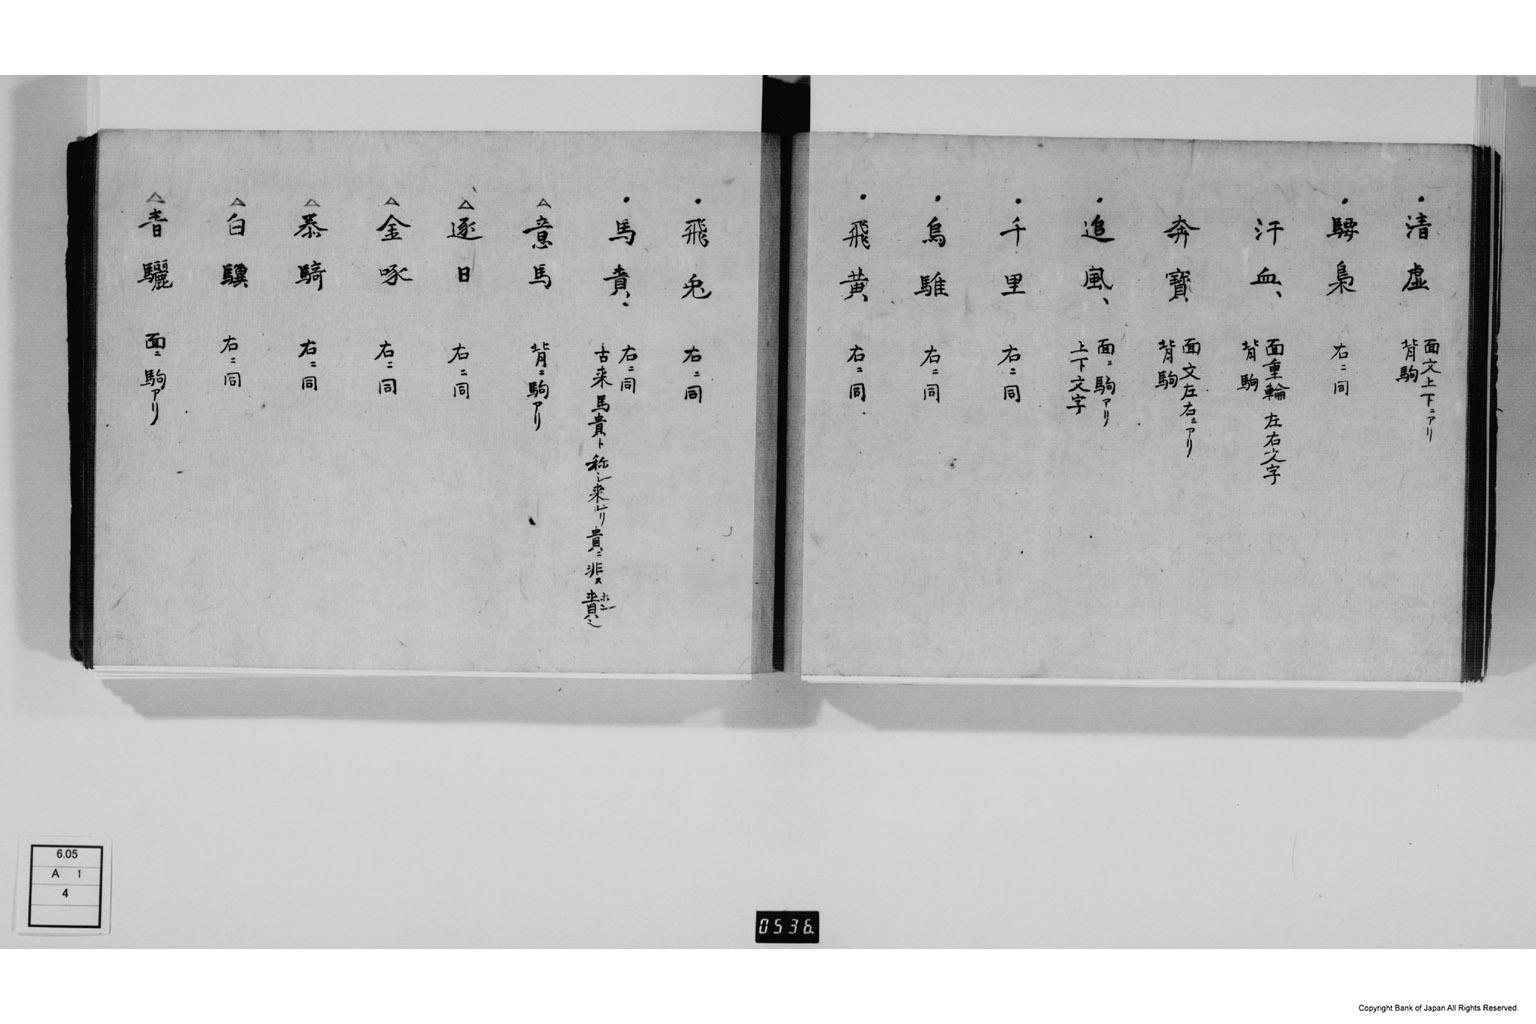 ・清虚 面文上下ニアリ
背駒
・驃梟 右ニ同
汗血、 面重輪 左右文字
背駒
奔寳 面文左右ニアリ
背駒
・追風、 面ニ駒アリ
上下文字
・千里 右ニ同
・烏騅 右ニ同
・飛黄 右ニ同
・飛兎 右ニ同
・馬賁、 右ニ同
古来馬貴ト称シ来レリ貴ニ非ス賁
△意馬 背ニ駒アリ
△逐日 右ニ同
△金啄 右ニ同
△恭騎 右ニ同
△白驥 右ニ同
△驪 面ニ駒アリ
6.05
A 1
4
0536.
Copyright Bank of Japan All Rights Reserved.